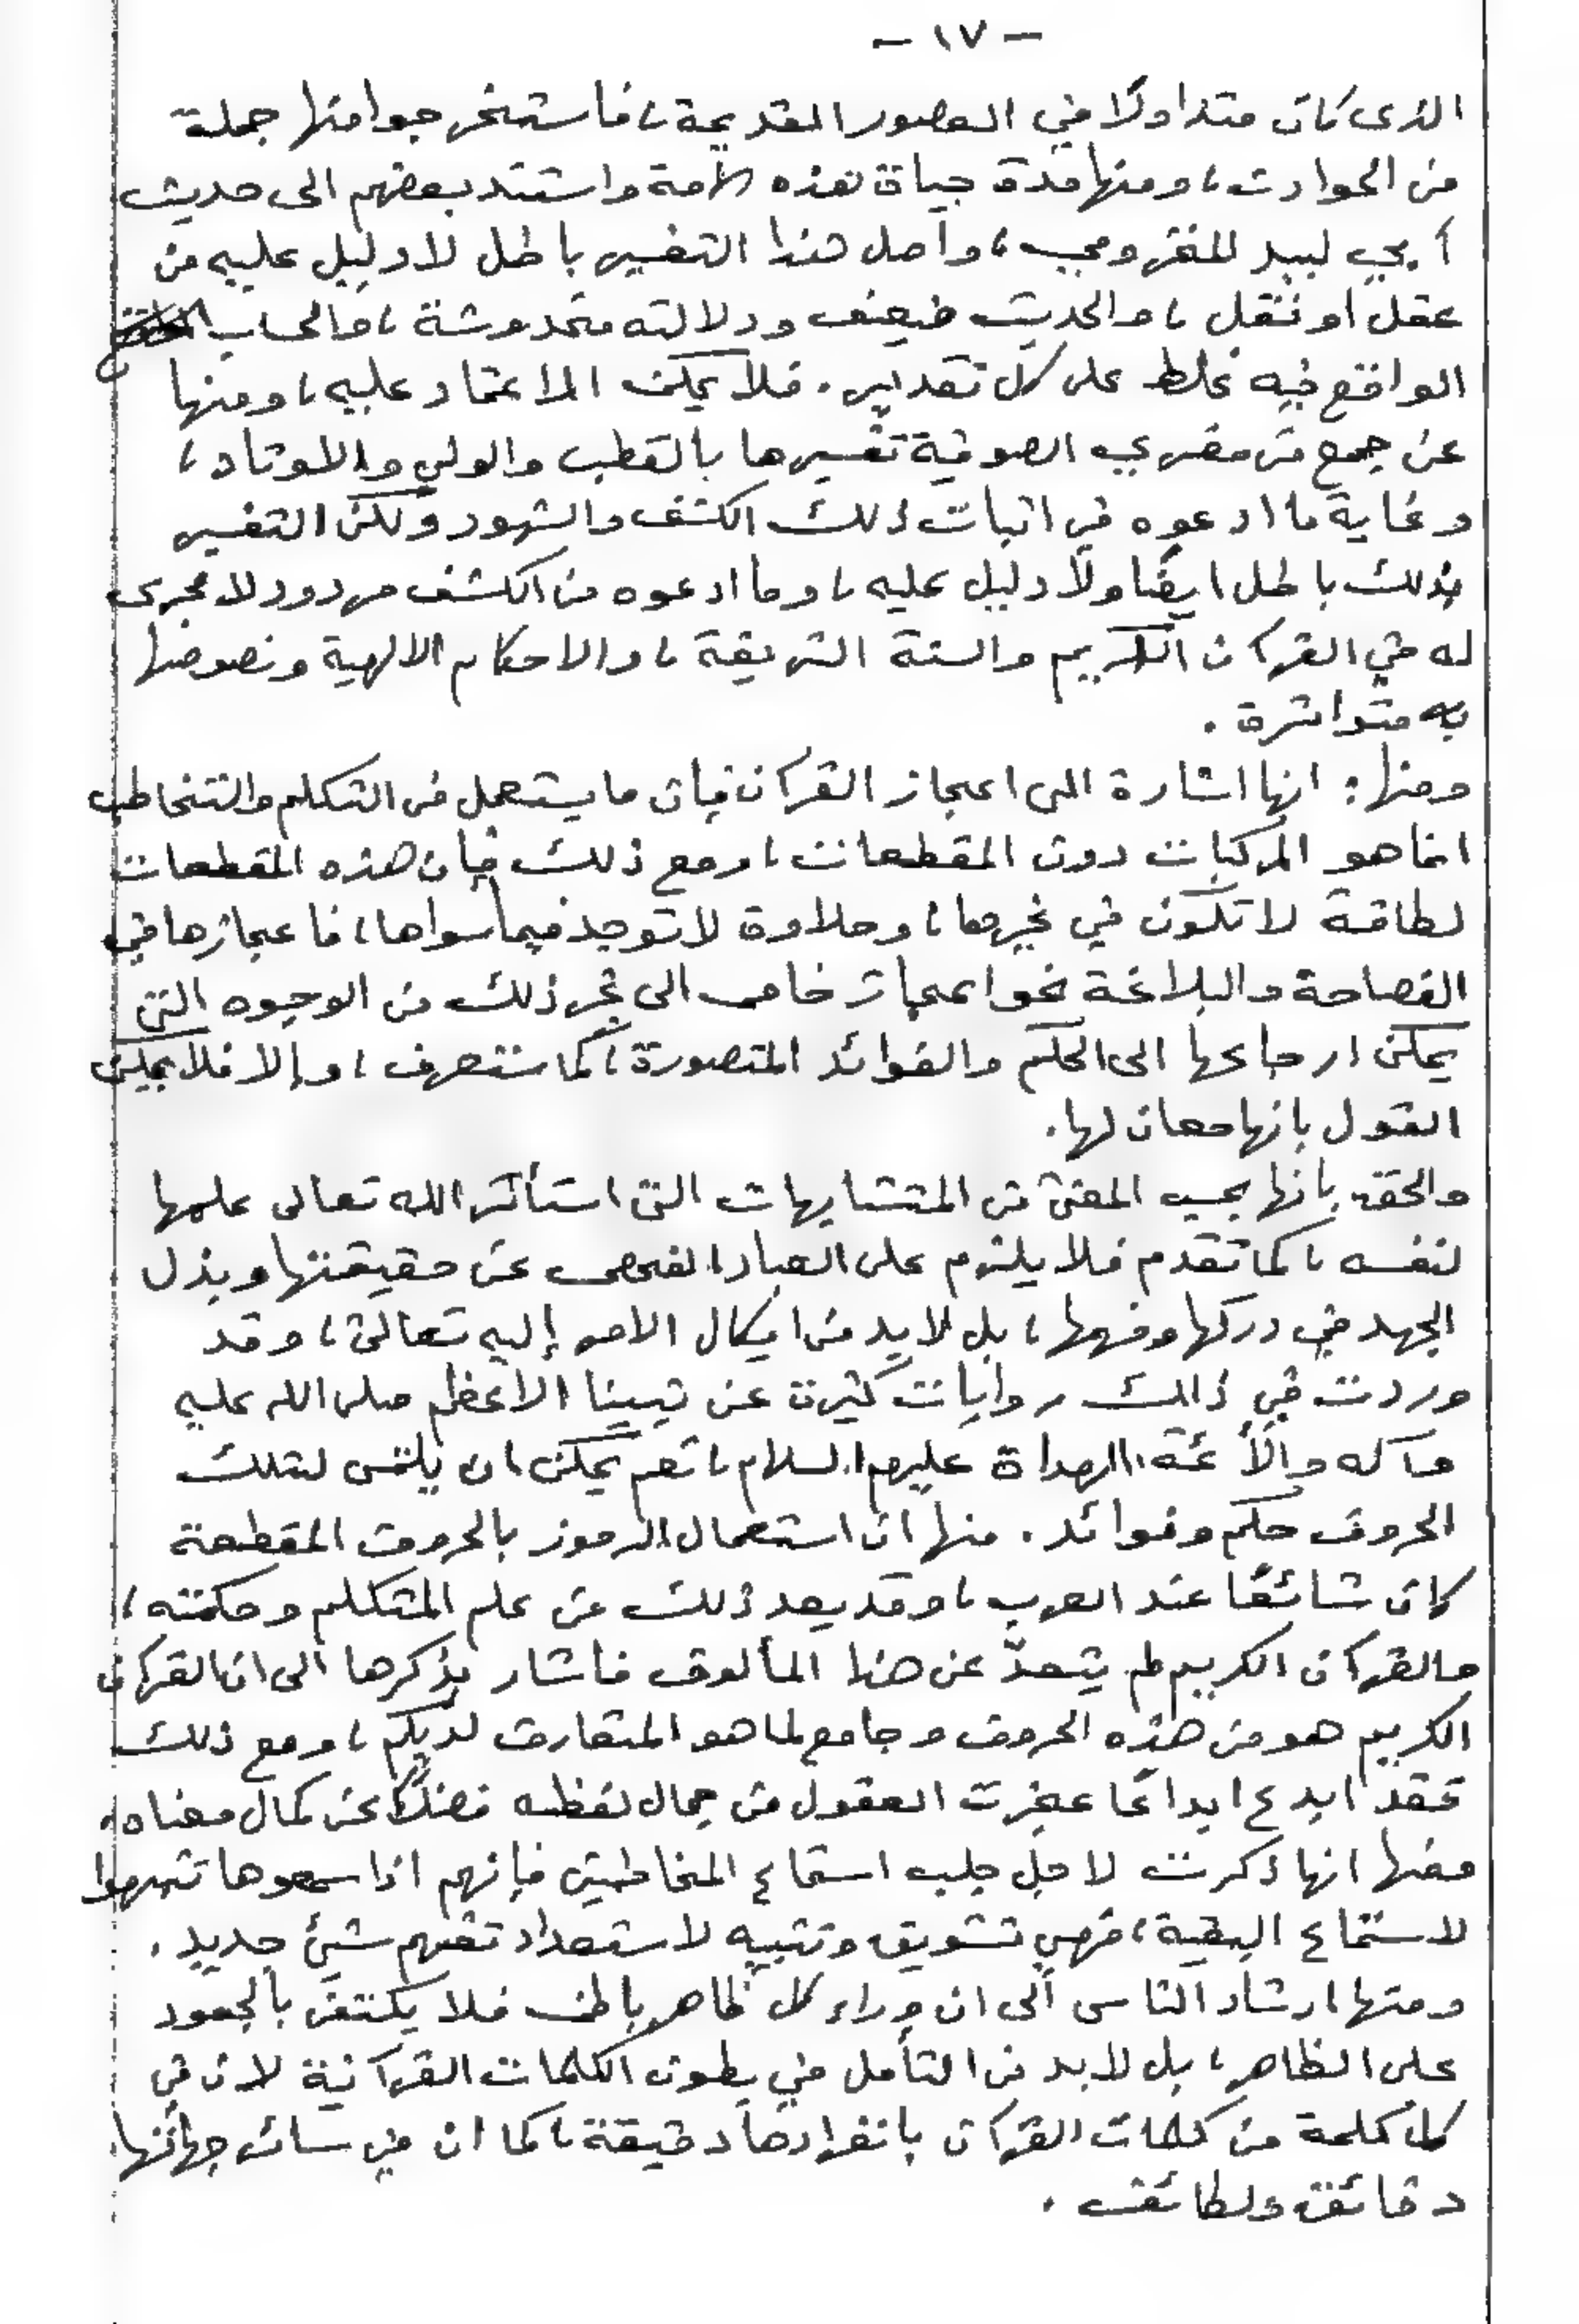 - ١٧ -
الذى كان متداولًا في العصور القديمة، فاستخرجوا منها جملة
من الحوادث، ومنها مدة حياة هذه الامة واستند بعضهم الى حديث
أبي لبيد المخزومي، واصل هذا التفسير باطل لا دليل عليه من
عقل او نقل، والحديث ضعيف ودلالته مخدوشة، والحساب
الواقع فيه غلط على كل تقدير. فلا يمكن الاعتماد عليه، ومنها
عن جمع من مفسري الصوفية تفسيرها بالقطب والولي والاوتاد،
وغاية ما ادعوه في اثبات ذلك الكشف والشهود ولكن التفسير
بذلك باطل ايضًا ولا دليل عليه، وما ادعوه من الكشف مردود لا مجرى
له في القرآن الكريم والسنة الشريفة، والاحكام الالهية ونصوصها
به متواترة.
ومنها: انها اشارة الى اعجاز القرآن فإن ما يستعمل في التكلم والتخاطب
انما هو المركبات دون المقطعات، ومع ذلك فإن هذه المقطعات
لطافة لا تكون في غيرها، وحلاوة لا توجد فيما سواها، فاعجازها في
الفصاحة والبلاغة نحو اعجاز خاص الى غير ذلك من الوجوه التي
يمكن ارجاعها الى الحكم والفوائد المتصورة، كما ستعرف، وإلا فلا يمكن
القول بانها معان لها.
والحق بانها بحسب المعنى من المتشابهات التي استأثر الله تعالى علمها
لنفسه، كما تقدم فلا يلزم على العباد الفحص عن حقيقتها وبذل
الجهد في دركها وفهمها، بل لابد من ايكال الامر إليه تعالى، وقد
وردت في ذلك روايات كثيرة عن نبينا الاعظم صلى الله عليه
وآله والأئمة الهداة عليهم السلام، نعم يمكن ان يلتمس لتلك
الحروف حكم وفوائد. منها ان استعمال الرموز بالحروف المقطعة
كان شائعًا عند العرب، وقد يعد ذلك من علم المتكلم وحكمته،
والقرآن الكريم لم يتعدّ عن هذا المألوف فاشار بذكرها الى ان القرآن
الكريم هو من هذه الحروف وجامع لما هو المتعارف لديكم، ومع ذلك
فقد ابدع ابداعًا عجزت العقول من جمال لفظه فضلًا عن كمال معناه.
ومنها انها ذكرت لاجل جلب استماع المخاطبين فإنهم اذا سمعوها تشوقوا
لاستماع البقية، فهي تشويق وتنبيه لاستعداد تفهم شيئ جديد.
ومنها ارشاد الناس الى ان وراء كل ظاهر باطن فلا يكتفى بالجمود
على الظاهر، بل لابد من التأمل في بطون الكلمات القرآنية لان في
كل كلمة من كلمات القرآن بانفرادها دقيقة، كما ان في سائر جهاتها
دقائق ولطائف.